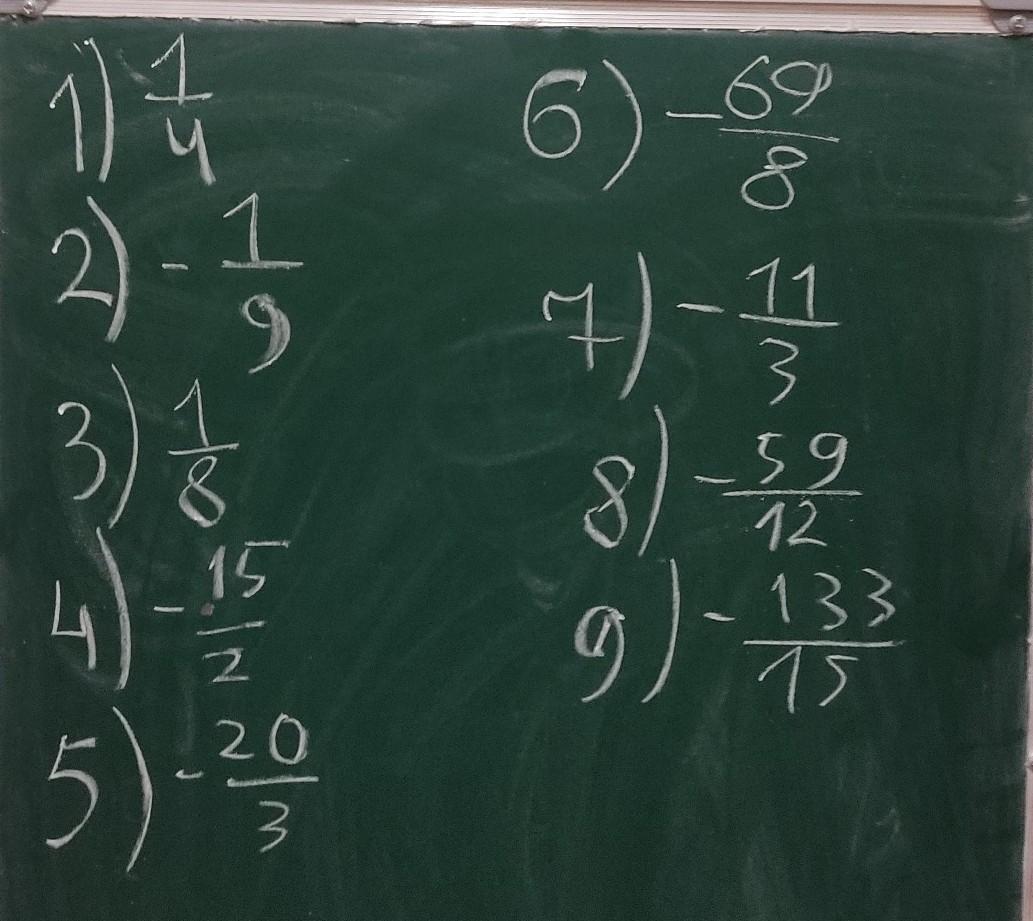 1) 1/4
2) - 1/9
3) 1/8
4) - 15/2
5) - 20/3
6) - 69/8
7) - 11/3
8) - 59/12
9) - 133/15